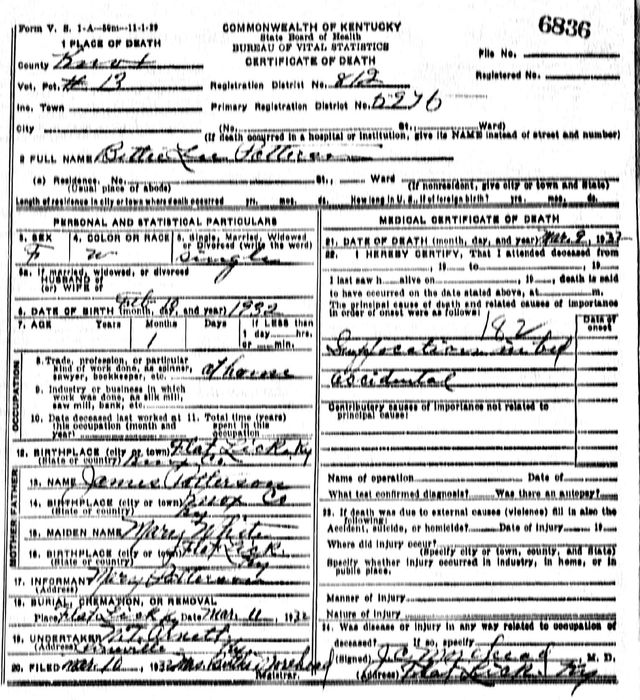 Form V. S. 1-A—50m—11-1-29
COMMONWEALTH OF KENTUCKY
State Board of Health
BUREAU OF VITAL STATISTICS
CERTIFICATE OF DEATH
6836
1 PLACE OF DEATH
County Knox
File No.
Vot. Pct. # 13
Registration District No. 812
Registered No.
Inc. Town
Primary Registration District No. 5976
City
(No. St., Ward)
(If death occurred in a hospital or institution, give its NAME instead of street and number)
2 FULL NAME Bettie Lee Patterson
(a) Residence. No. St., Ward
(Usual place of abode) (If nonresident, give city or town and State)
Length of residence in city or town where death occurred yrs. mos. ds. How long in U. S., if of foreign birth? yrs. mos. ds.
PERSONAL AND STATISTICAL PARTICULARS
3. SEX F
4. COLOR OR RACE w
5. Single, Married, Widowed or Divorced (write the word) Single
5a. If married, widowed, or divorced
HUSBAND of
(or) WIFE of
6. DATE OF BIRTH (month, day, and year) Feb 10 1932
7. AGE Years Months Days If LESS than
1 1 day hrs.
or min.
OCCUPATION
8. Trade, profession, or particular
kind of work done, as spinner,
sawyer, bookkeeper, etc. at home
9. Industry or business in which
work was done, as silk mill,
saw mill, bank, etc.
10. Date deceased last worked at this occupation (month and year)
11. Total time (years) spent in this occupation
12. BIRTHPLACE (city or town) Flat Lick Ky
(State or country)
MOTHER FATHER
13. NAME James Patterson
14. BIRTHPLACE (city or town) Knox Co
(State or country) Ky
15. MAIDEN NAME Mary
16. BIRTHPLACE (city or town) Flat Lick
(State or country) Ky
17. INFORMANT Mary Patterson
(Address)
18. BURIAL, CREMATION, OR REMOVAL
Place Flat Lick Ky Date Mar. 11, 1932
19. UNDERTAKER
(Address)
20. FILED Mar 10, 1932 Mrs. Moorehead
Registrar.
MEDICAL CERTIFICATE OF DEATH
21. DATE OF DEATH (month, day, and year) Mar. 9, 1932
22. I HEREBY CERTIFY, That I attended deceased from
, 19 to , 19
I last saw h alive on , 19 , death is said
to have occurred on the date stated above, at m.
The principal cause of death and related causes of importance
in order of onset were as follows:
Date of onset
182
Suffocation in bed
accidental
Contributory causes of importance not related to
principal cause:
Name of operation Date of
What test confirmed diagnosis? Was there an autopsy?
23. If death was due to external causes (violence) fill in also the
following:
Accident, suicide, or homicide? Date of injury 19
Where did injury occur?
(Specify city or town, county, and State)
Specify whether injury occurred in industry, in home, or in
public place.
Manner of injury
Nature of injury
24. Was disease or injury in any way related to occupation of
deceased? If so, specify
(Signed) M. D.
(Address) Flat Lick, Ky